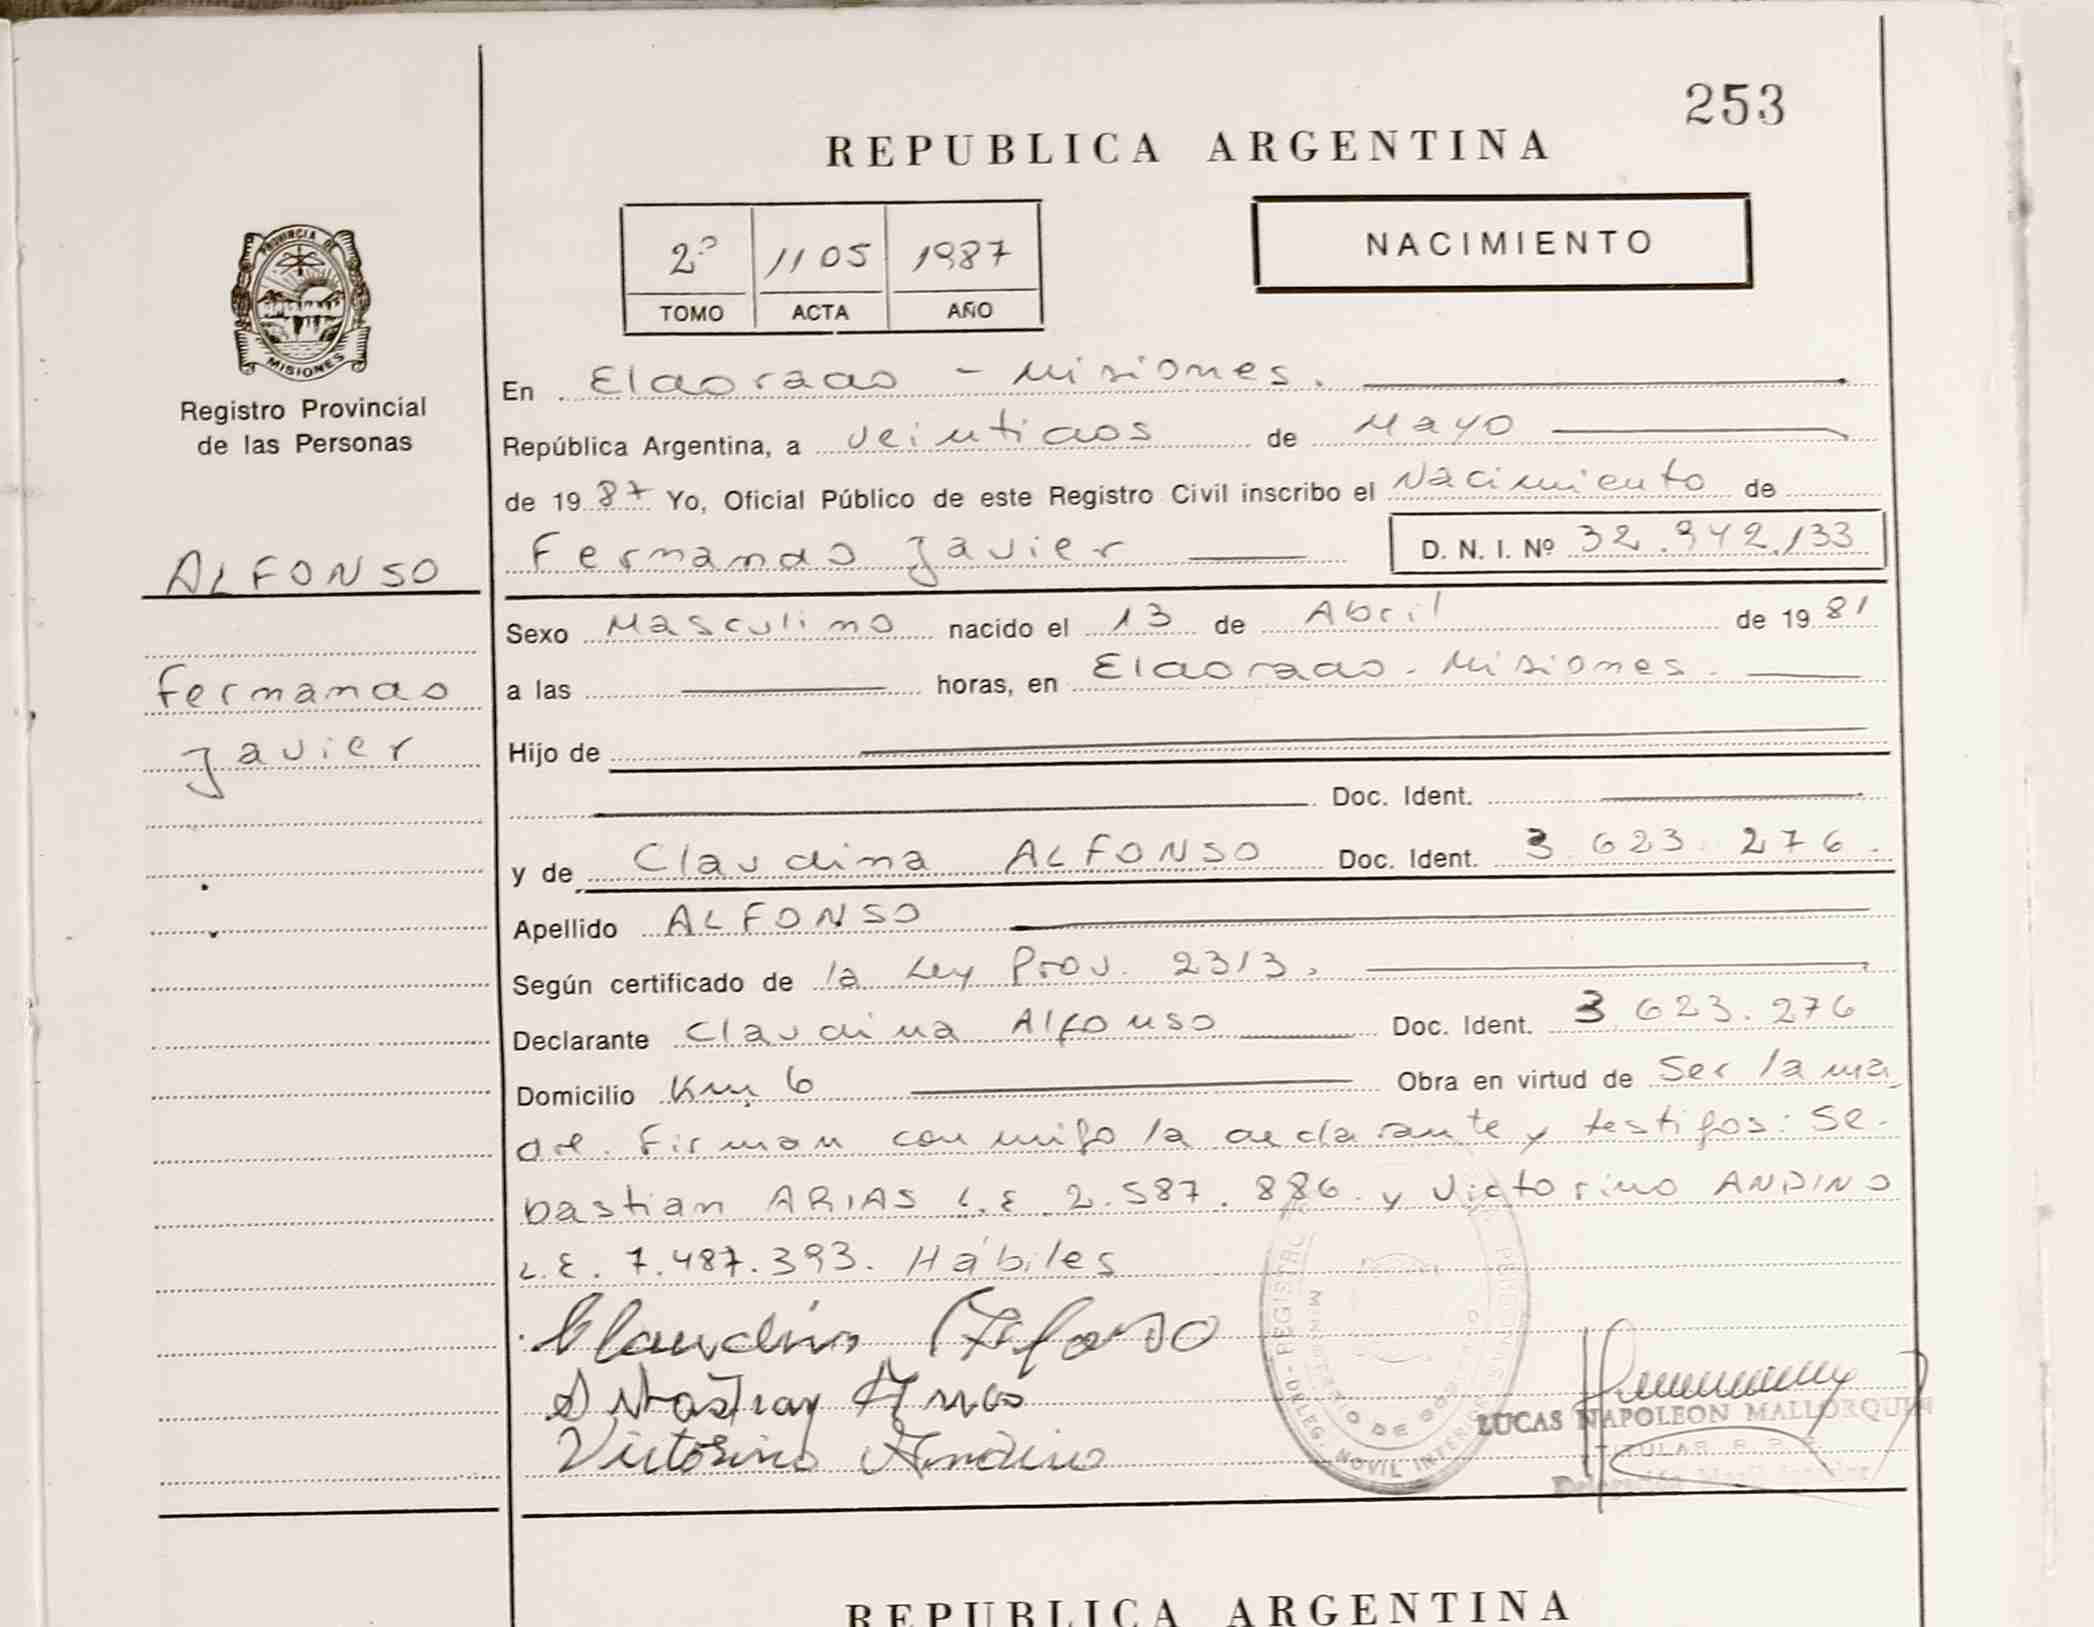 253
REPUBLICA ARGENTINA
2º 1105 1987
TOMO ACTA AÑO
NACIMIENTO
PROVINCIA DE
MISIONES
Registro Provincial
de las Personas
ALFONSO
Fernando
Javier
En Eldorado - Misiones.
República Argentina, a veintidos de Mayo
de 1987 Yo, Oficial Público de este Registro Civil inscribo el Nacimiento de
Fernando Javier D. N. I. Nº 32.942.133
Sexo Masculino nacido el 13 de Abril de 1981
a las horas, en Eldorado - Misiones.
Hijo de
Doc. Ident.
y de Claudina ALFONSO Doc. Ident. 3.623.276.
Apellido ALFONSO
Según certificado de la Ley Prov. 2313.
Declarante Claudina Alfonso Doc. Ident. 3.623.276
Domicilio Km 6 Obra en virtud de Ser la ma
dre. Firman conmigo la declarante y testigos: Se-
bastian ARIAS L.E. 2.587.886. y Victorino ANDINO
L.E. 7.487.393. Hábiles
Claudina Alfonso
Victorino Andino
LUCAS NAPOLEON MALLORQUIN
TITULAR R.P.P.
REPUBLICA ARGENTINA